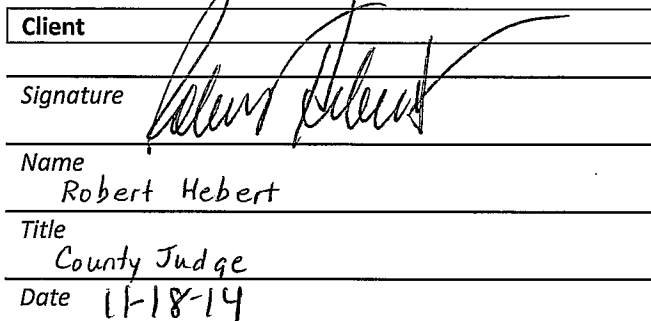 Client
Signature Robert Hebert
Name
Robert Hebert
Title
County Judge
Date 11-18-14